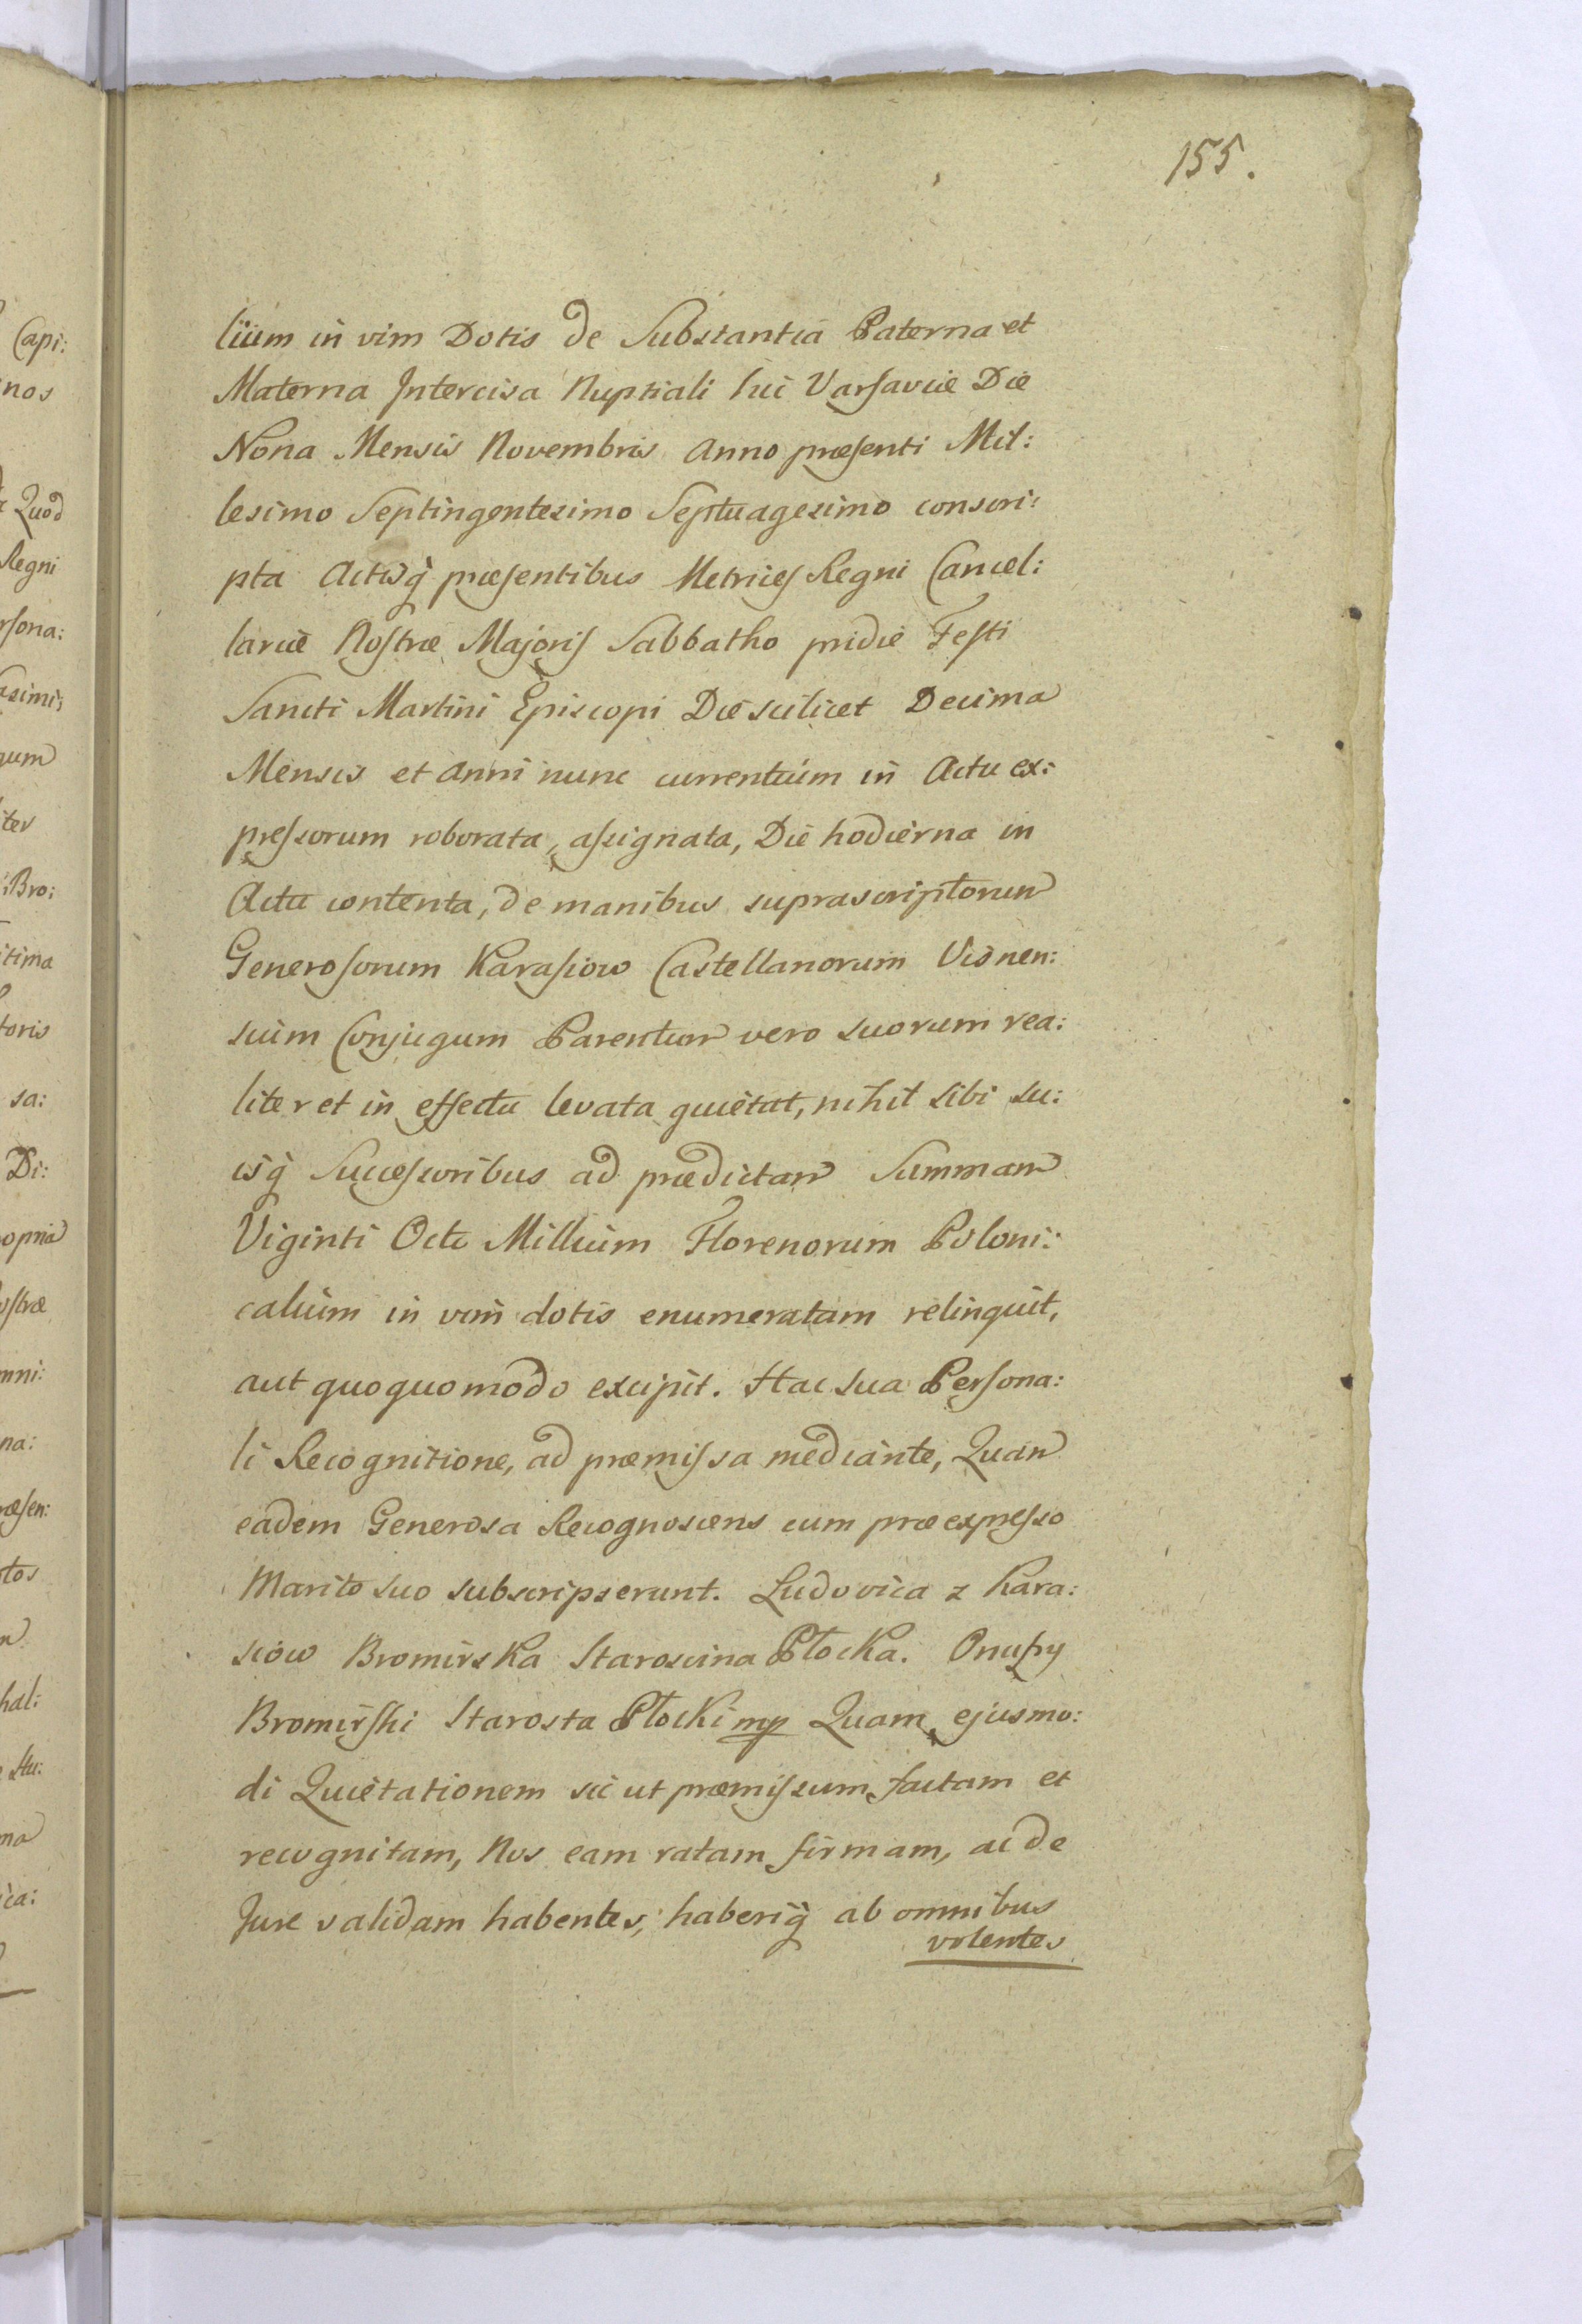 155.
lium in vim Dotis de Substantia Paterna et
Materna Intercisa Nuptiali hic Varsaviæ Die
Nona Mensis Novembris Anno præsenti Mil:
lesimo Septingentesimo Septuagesimo conscri:
pta Actisq̃ præsentibus Metrices Regni Cancel:
lariæ Nostræ Majoris Sabbatho pridie Festi
Sancti Martini Episcopi Die scilicet Decima
Mensis et Anni nunc currentium in Actu ex:
pressorum roborata, assignata, Die hodierna in
Actu contenta, de manibus suprascriptorum
Generosorum Karasiow Castellanorum Visnen:
sium Conjugum Parentum vero suorum rea:
liter et in effectu levata quietat, nihil sibi su:
isq̃ Successoribus ad prædictam Summam
Viginti Octo Millium Florenorum Poloni:
calium in vim dotis enumeratam relinquit,
aut quoquomodo excipit. Hac sua Persona:
li Recognitione, ad præmissa mediante, Quam
eadem Generosa Recognoscens cum præexpresso
Marito suo subscripserunt. Ludovica z Kara:
siow Bromirska Staroscina Płocka. Onufry
Bromirski Starosta Płocki mp Quam ejusmo:
di Quietationem sic ut præmissum factam et
recognitam, Nos eam ratam firmam, ac de
Jure validam habentes, haberiq̃ ab omnibus
volentes
Capi:
nos
Quod
Regni
rsona:
asimi;
gum
iter
Bro:
itima
toris
sa:
Di:
opria
ostræ
mni:
na:
ræsen:
tos
hal:
ma
ica: